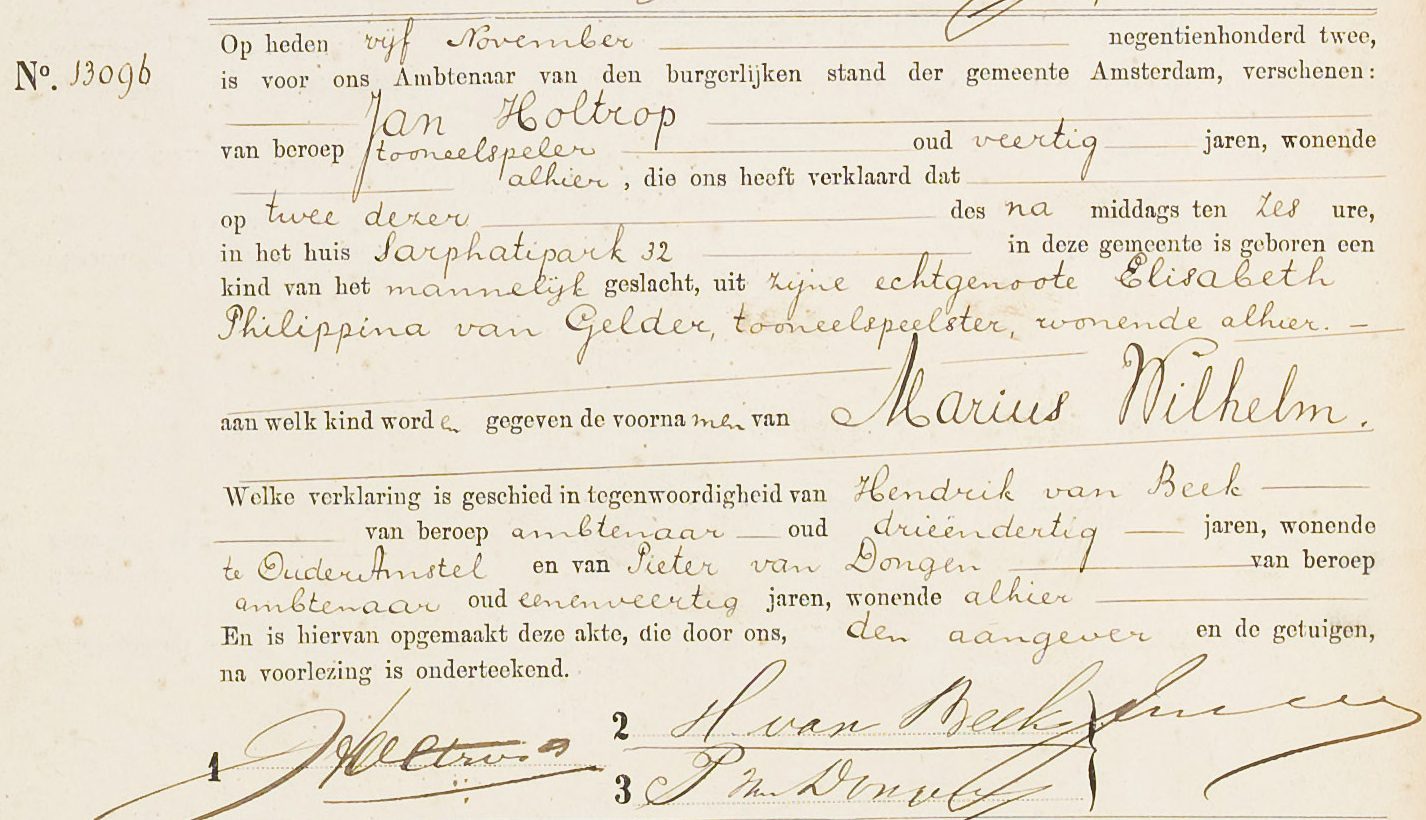 Op heden vijf November negentienhonderd twee,
No. 13096 is voor ons Ambtenaar van den burgerlijken stand der gemeente Amsterdam, verschenen:
Jan Holtrop
van beroep tooneelspeler oud veertig jaren, wonende
alhier, die ons heeft verklaard dat
op twee dezer des na middags ten zes ure,
in het huis Sarphatipark 32 in deze gemeente is geboren een
kind van het mannelijk geslacht, uit zijne echtgenoote Elisabeth
Philippina van Gelder, tooneelspeelster, wonende alhier.
aan welk kind worden gegeven de voornamen van Marius Wilhelm.
Welke verklaring is geschied in tegenwoordigheid van Hendrik van Beek
van beroep ambtenaar oud drieëndertig jaren, wonende
te OuderAmstel en van Pieter van Dongen van beroep
ambtenaar oud eenenveertig jaren, wonende alhier
En is hiervan opgemaakt deze akte, die door ons, den aangever en de getuigen,
na voorlezing is onderteekend.
1 JHoltrop
2 H van Beek
3 P van Dongen